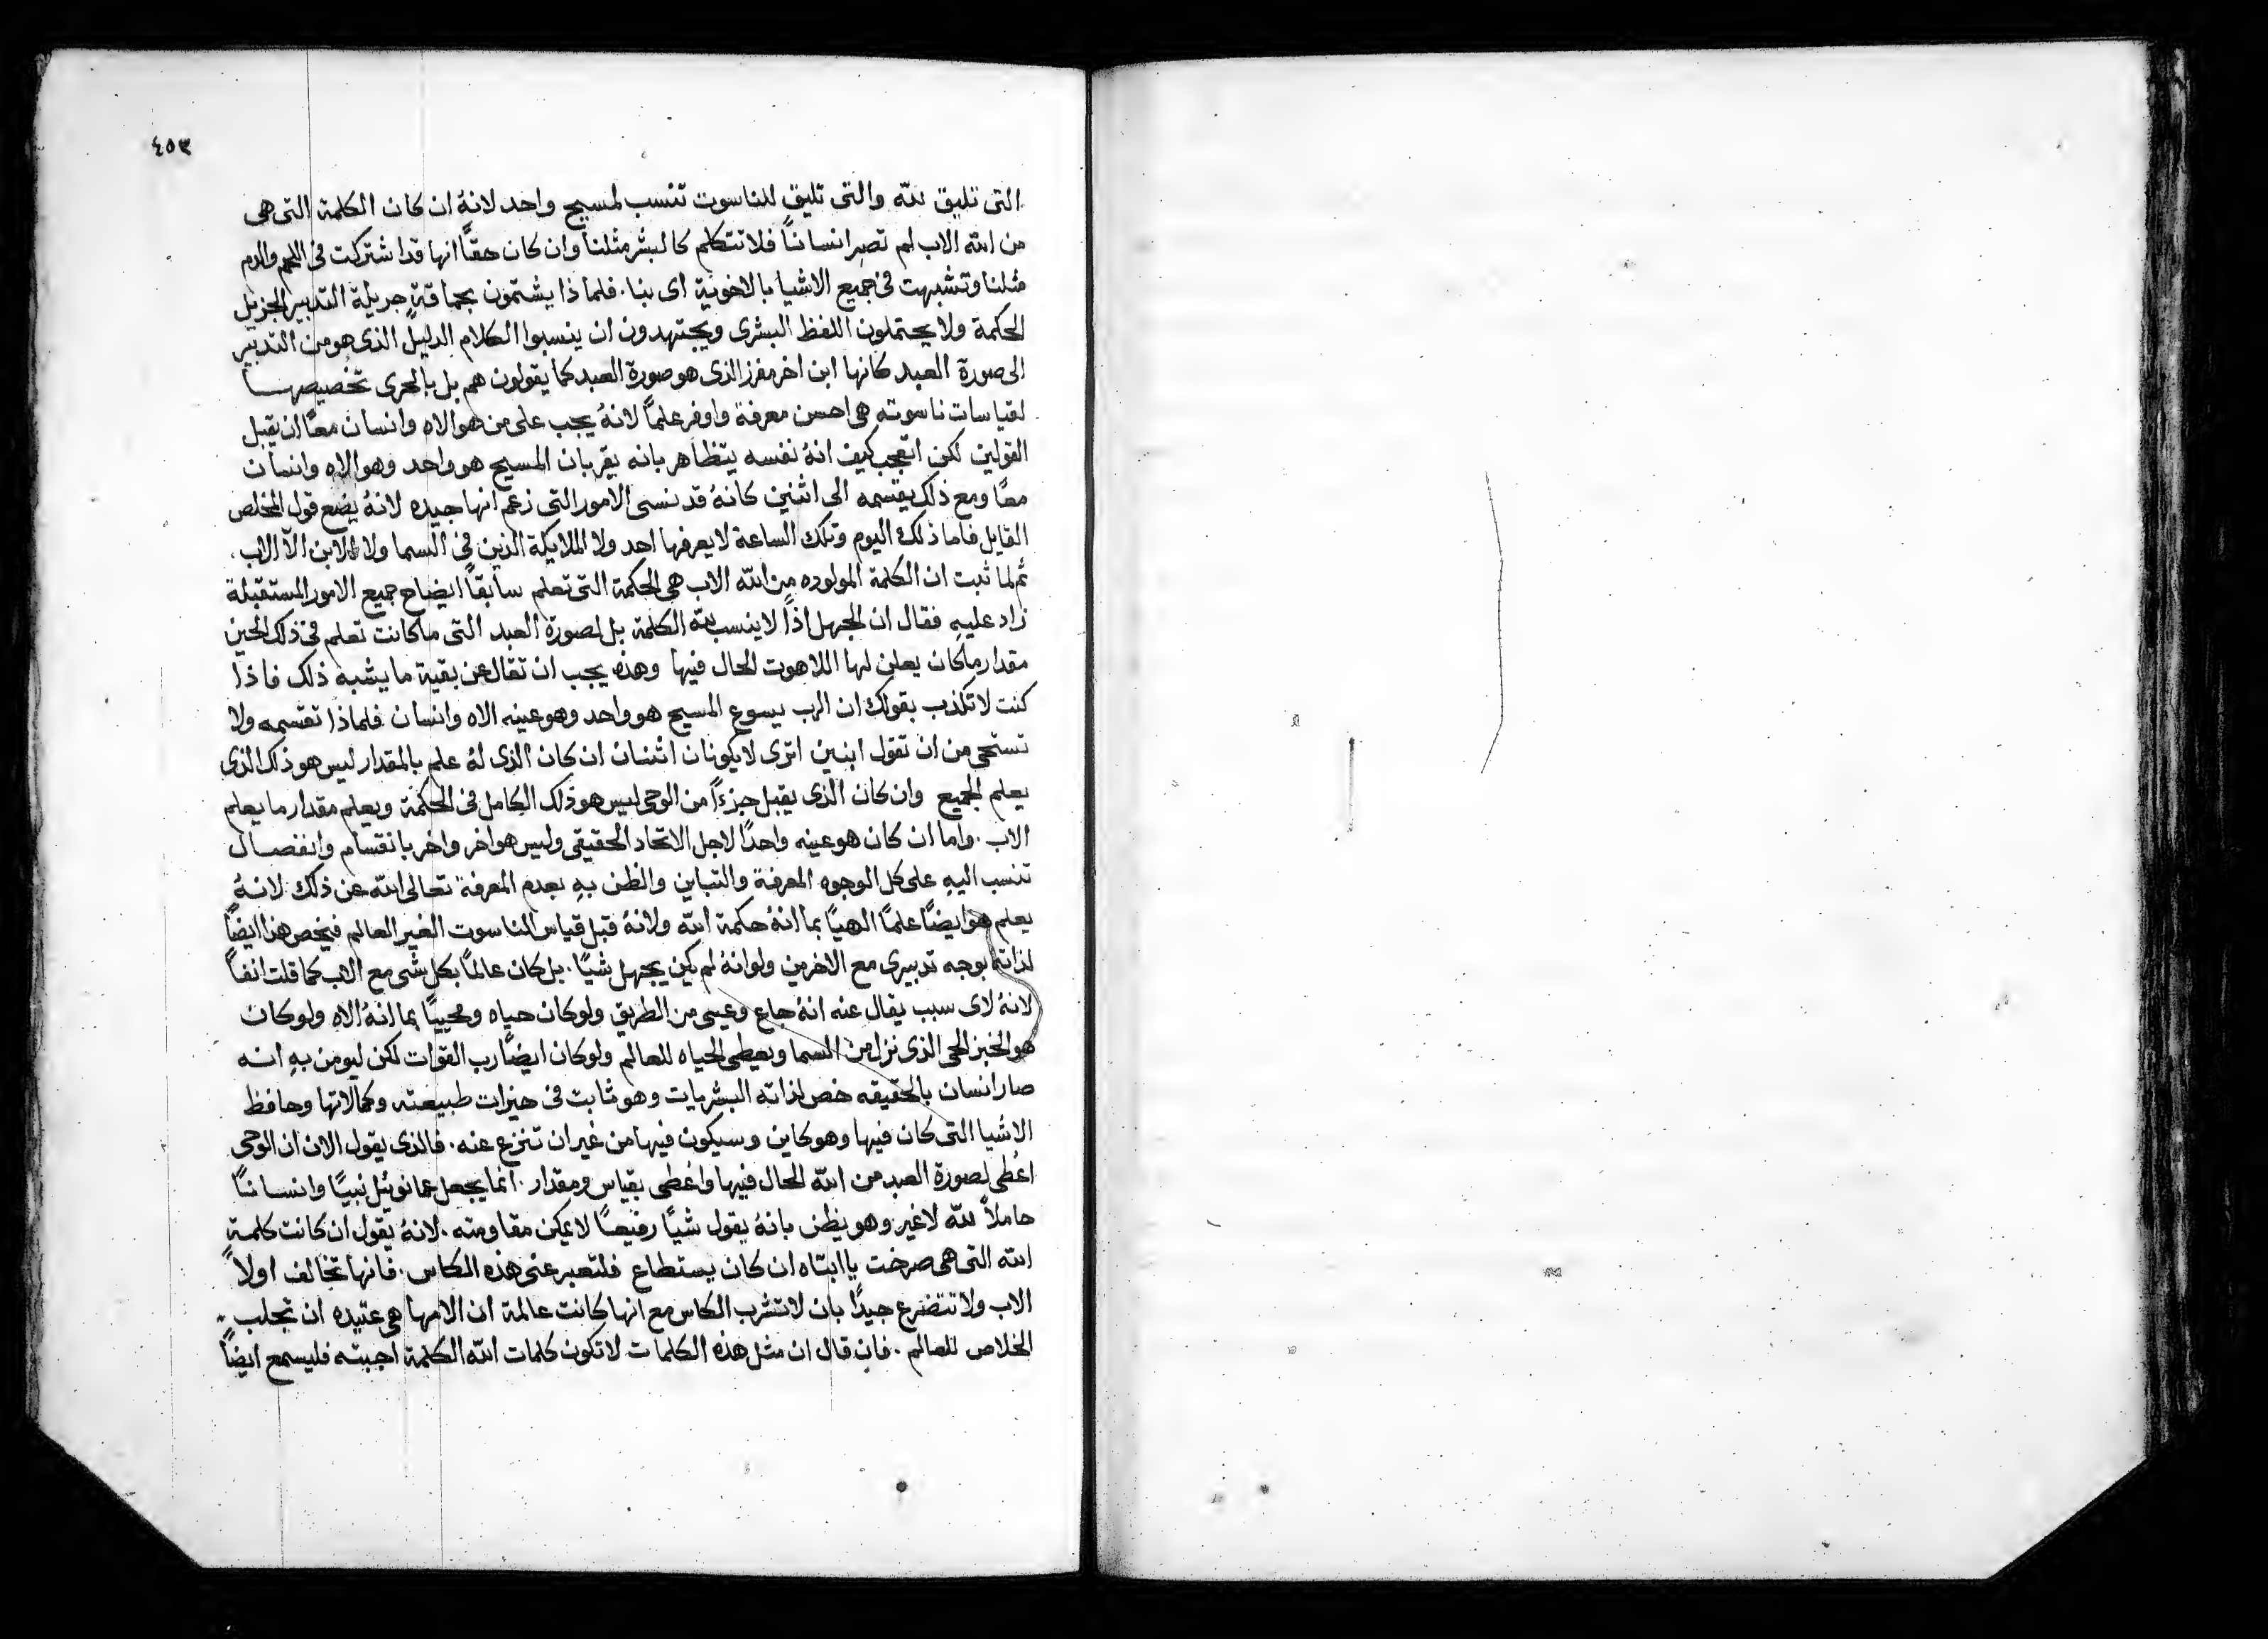 ٤٥٣
التى تليق لله والتى تليق للناسوت تنسب لمسيح واحد لانهُ ان كان الكلمة التى هى
من الله الاب لم تصر انساناً فلا تتكلم كالبشر مثلنا وان كان حقاً انها قد اشتركت فى اللحم والدم
مثلنا وتشبهت فى جميع الاشيا بالاخوية اى بنا. فلماذا يشتمون بحماقةٍ جريلة التدبير الجزيل
الحكمة ولا يحتملون اللفظ البشرى ويجتهدون ان ينسبوا الكلام الدليل الذى هو من التدبير
الى صورة العبد كانها ابن اخر مفرز الذى هو صورة العبد كما يقولون هم بل بالحرى تخصيصها
لقياسات ناسوته هى احسن معرفة واوفر علماً لانهُ يجب على من هو الاه وانسان معاً ان يقبل
القولين لكن اتعجب كيف انهُ نفسه يتظاهر بانه يقر بان المسيح هو واحد وهو الاه وانسان
معاً ومع ذلك يقسمه الى اثنين كانهُ قد نسى الامور التى زعم انها جيده لانهُ يضع قول المخلص
القايل فاما ذلك اليوم وتلك الساعة لا يعرفها احد ولا الملايكة الذين فى السما ولا الابن الا الاب.
ثم لما ثبت ان الكلمة المولوده من الله الاب هى الحكمة التى تعلم سابقاً ايضاح جميع الامور المستقبلة
زاد عليهِ فقال ان الجهل اذاً لا ينسب لله الكلمة بل لصورة العبد التى ما كانت تعلم فى ذلك الحين
مقدار ما كان يعلن لها اللاهوت الحال فيها وهذه يجب ان تقال عن بقية ما يشبه ذلك فاذا
كنت لا تكذب بقولك ان الرب يسوع المسيح هو واحد وهو عينه الاه وانسان فلماذا تقسمه ولا
تستحى من ان تقول ابنين اترى لا يكونان اثنان ان كان الذى لهُ علم بالمقدار ليس هو ذلك الذى
يعلم الجميع وان كان الذى يقبل جزءاً من الوحى ليس هو ذلك الكامل فى الحكمة ويعلم مقدار ما يعلم
الاب. واما ان كان هو عينه واحداً لاجل الاتحاد الحقيقى وليس هو اخر واخر بانقسام وانفصال
تنسب اليهِ على كل الوجوه المعرفة والتباين والظن بهِ بعدم المعرفة تعالى الله عن ذلك لانهُ
يعلم هو ايضاً علماً الهياً بما انهُ حكمة الله ولانهُ قبل قياس الناسوت الغير العالم فيخص هذا ايضاً
لذاته بوجه تدبيرى مع الاخرين ولو انهُ لم يكن يجهل شياً. بل كان عالماً بكل شى مع الاب كما قلت انفاً
لانهُ لاى سبب يقال عنه انهُ جاع وعيى من الطريق ولو كان حياه ومحيياً بما انهُ الاه ولو كان
هو الخبز الحى الذى نزل من السما ويعطى الحياه للعالم ولو كان ايضاً رب القوات لكن ليومن بهِ انه
صار انسان بالحقيقه خص لذاته البشريات وهو ثابت فى خيرات طبيعته وكمالاتها وحافظ
الاشيا التى كان فيها وهو كاين وسيكون فيها من غير ان تنزع عنه. فالذى يقول الان ان الوحى
اعُطى لصورة العبد من الله الحال فيها واعُطى بقياس ومقدار. انما يجعل عمانوئيل نبياً وانساناً
حاملاً لله لا غير وهو يظن بانهُ يقول شياً رفيعاً لا يمكن مقاومته. لانهُ يقول ان كانت كلمة
الله التى هى صرخت يا ابتاه ان كان يستطاع فلتعبر عنى هذه الكاس. فانها تخالف اولاً
الاب ولا تتضرع جيداً بان لا تشرب الكاس مع انها كانت عالمة ان الامها هى عتيده ان تجلب
الخلاص للعالم. فان قال ان مثل هذه الكلمات لا تكون كلمات الله الكلمة اجبته فليسمع ايضاً